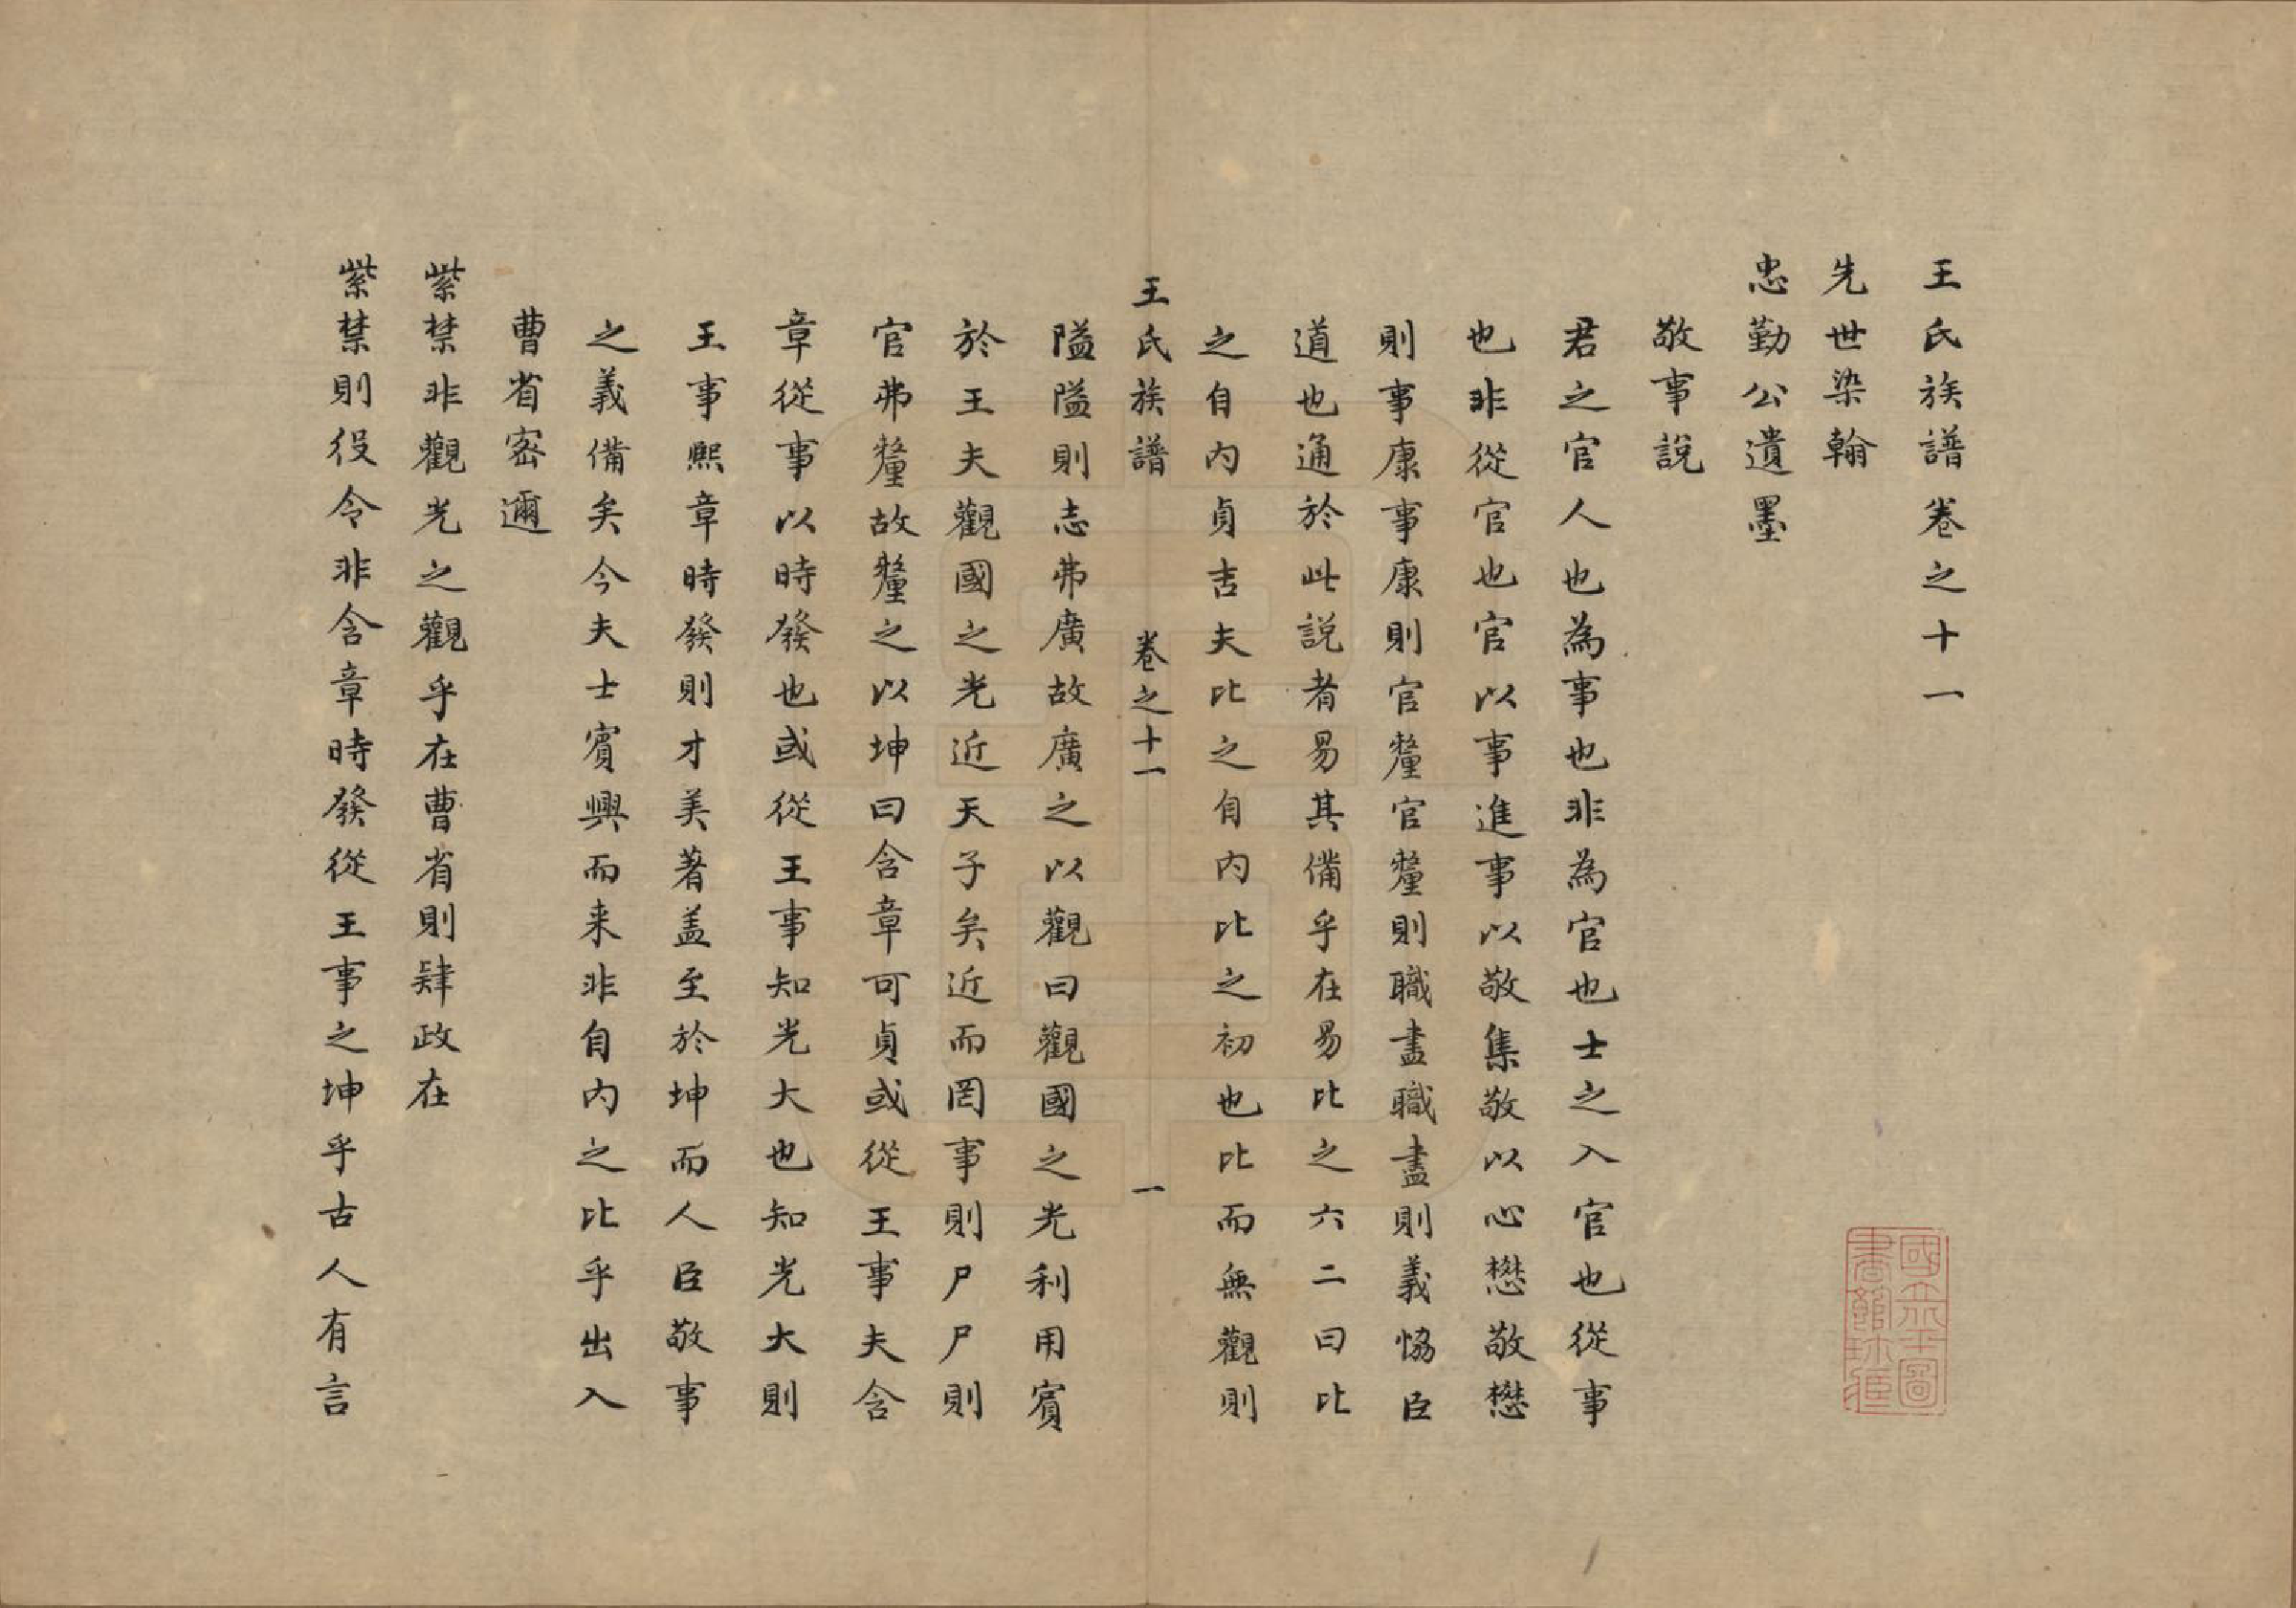 王氏族譜卷之十一
先世染翰
忠勤公遺墨
敬事說
君之官人也為事也非為官也士之入官也從事
也非從官也官以事進事以敬集敬以心懋敬懋
則事康事康則官釐官釐則職盡職盡則義恊臣
道也通於此説者易其備乎在易比之六二曰比
之自内貞吉夫比之自内比之初也比而無觀則
王氏族譜 卷之十一 一
隘隘則志弗廣故廣之以觀曰觀國之光利用賓
於王夫觀國之光近天子矣近而罔事則尸尸則
官弗釐故釐之以坤曰含章可貞或從王事夫含
章從事以時發也或從王事知光大也知光大則
王事熙章時發則才美著盖至於坤而人臣敬事
之義備矣今夫士賓興而来非自内之比乎出入
曹省密邇
紫禁非觀光之觀乎在曹省則肄政在
紫禁則役令非含章時發從王事之坤乎古人有言
國立中央圖書館珍藏